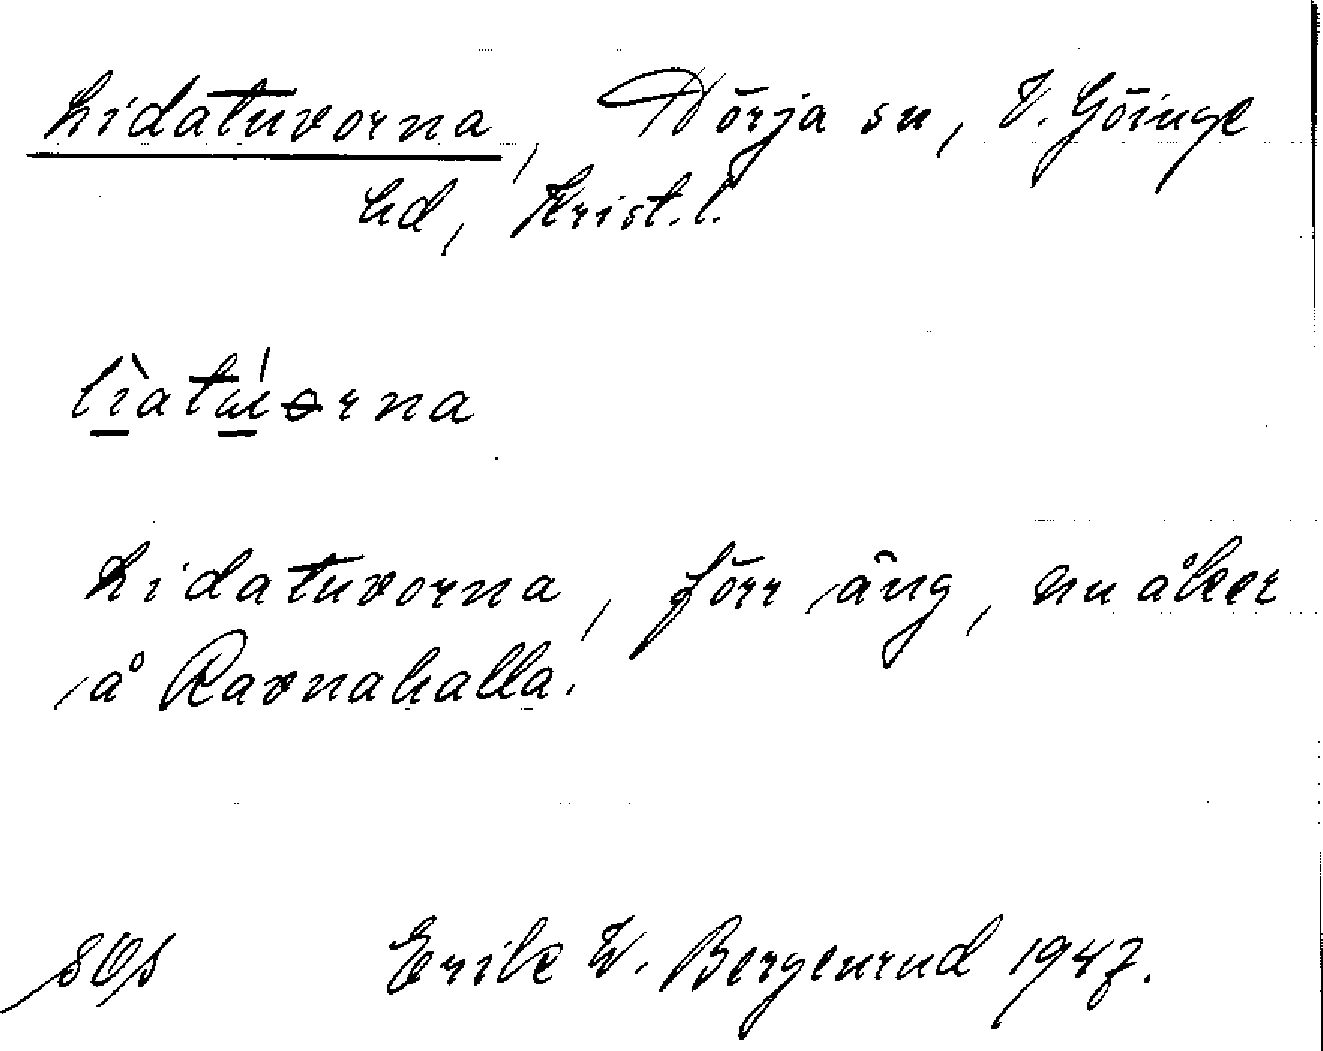 Lidatuvorna, Nörja sn, V. Göinge
hd, Krist. l.
lìatúorna
Lidatuvorna, förr äng, nu åker
å Ravnahalla.
Erik W. Bergenrud 1947.